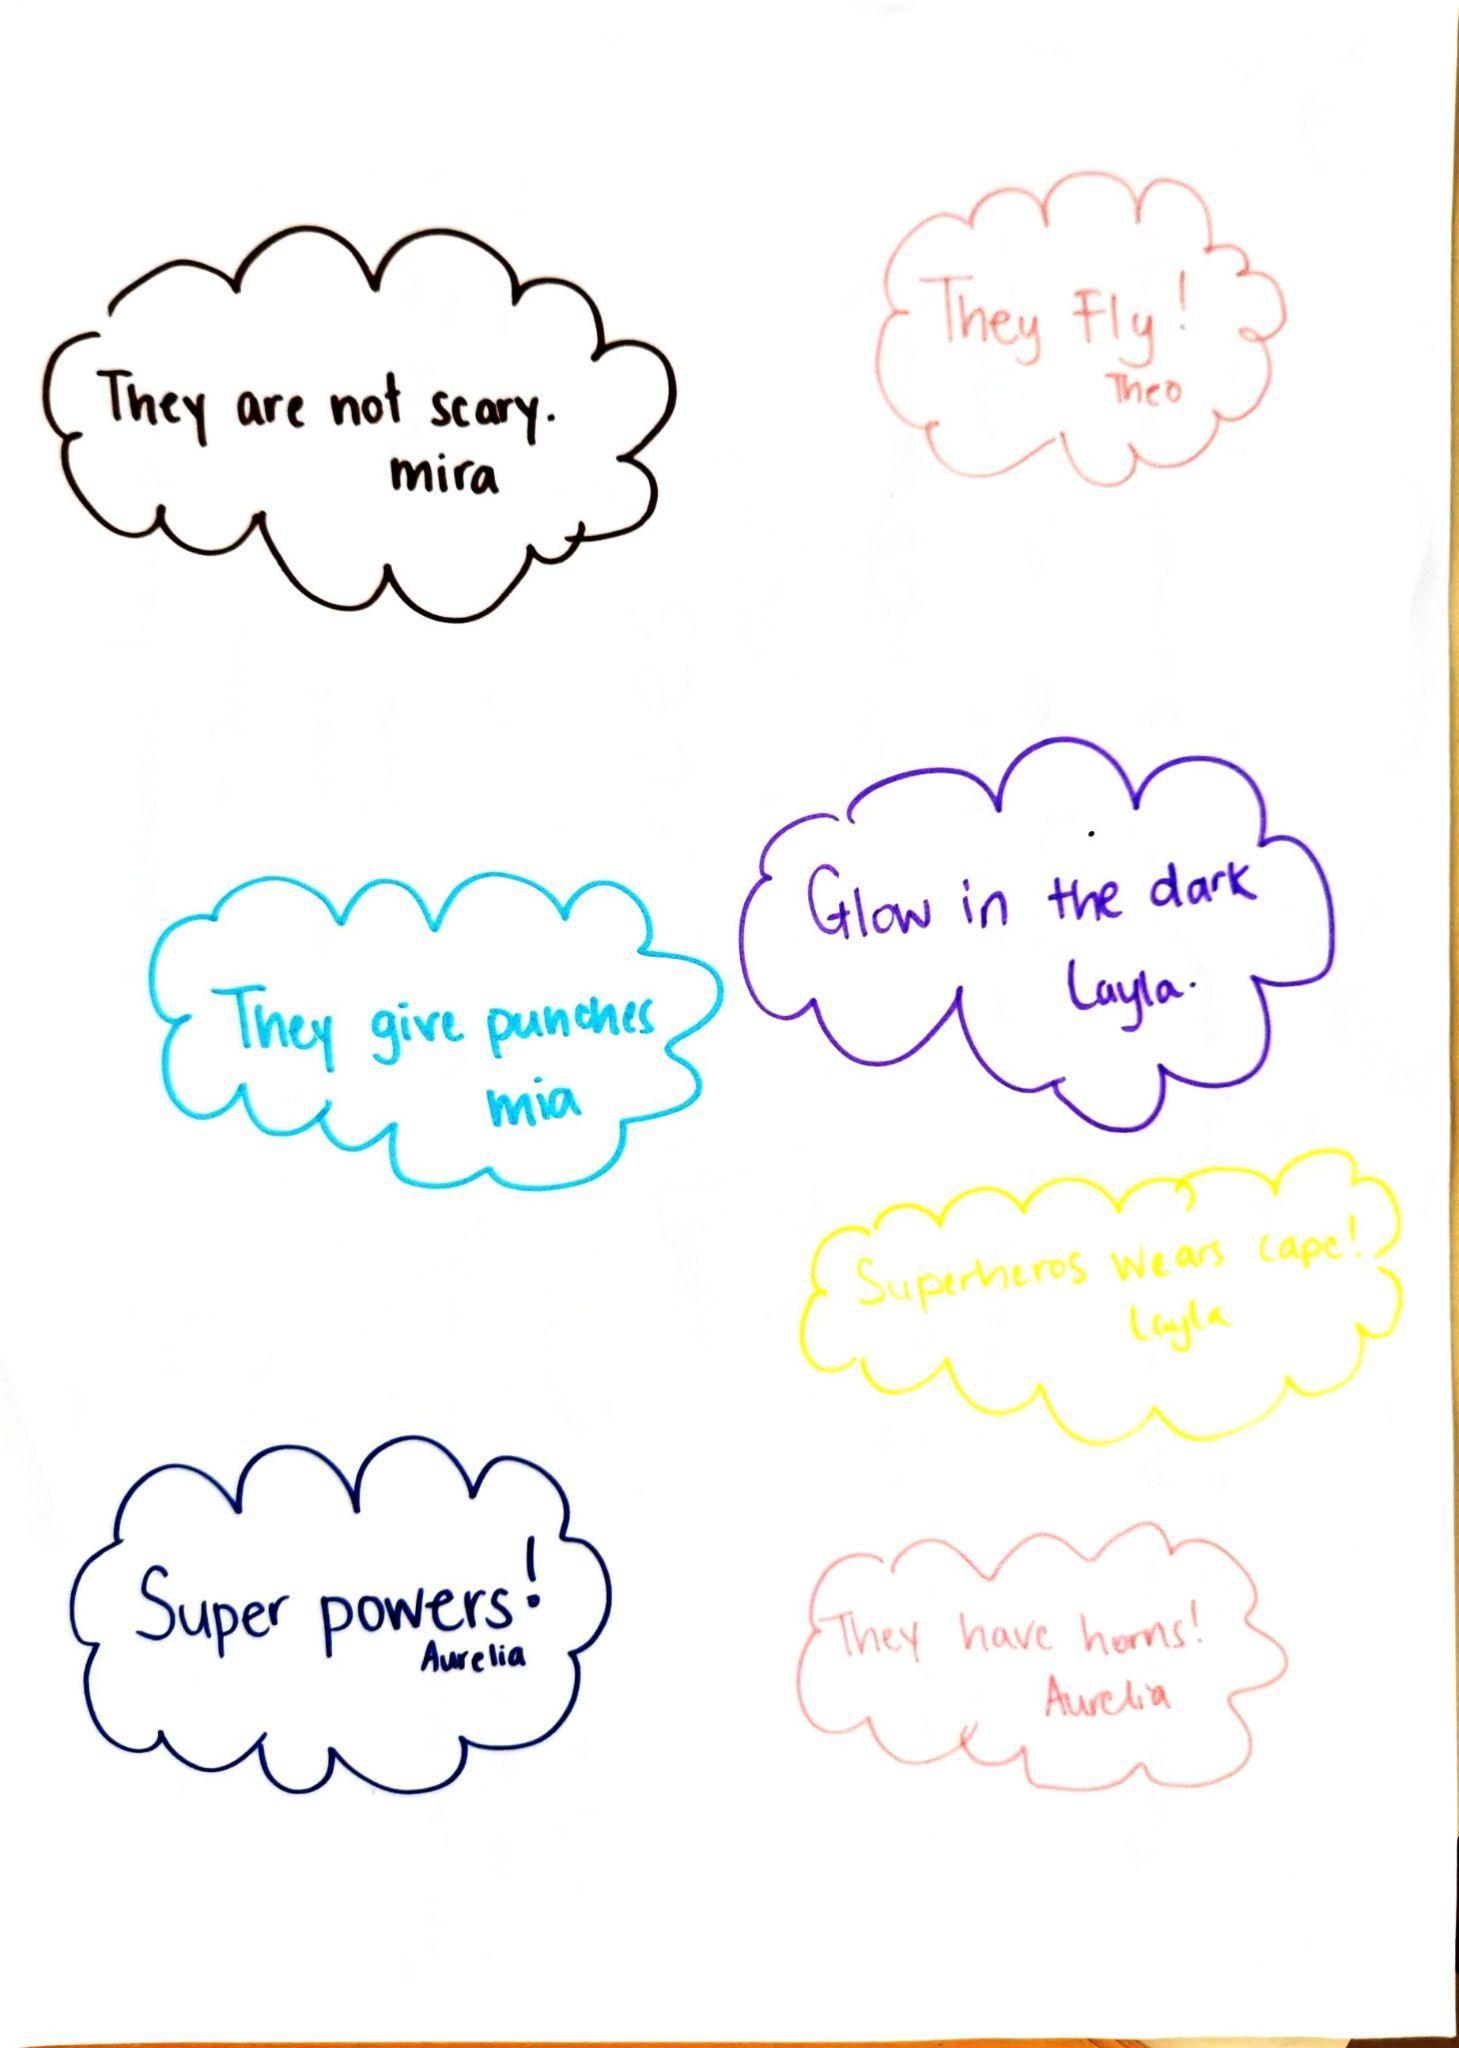 They are not scary.
mira
They Fly!
Theo
Glow in the dark
Layla.
They give punches
mia
Superheros Wears cape!
Layla
Super powers!
Aurelia
They have horns!
Aurelia